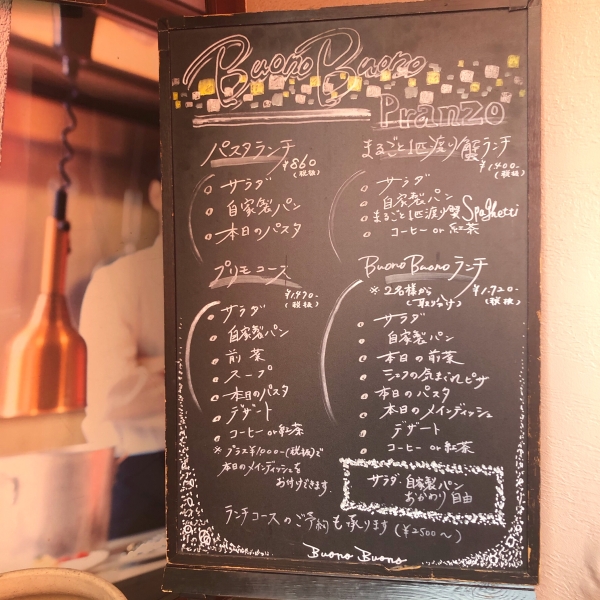 Buono Buono
Pranzo
パスタランチ
¥860
(税抜)
○ サラダ
○ 自家製パン
○ 本日のパスタ
まるごと1匹渡り蟹ランチ
¥1,400-
(税抜)
○ サラダ
○ 自家製パン
○ まるごと1匹渡り蟹Spaghetti
○ コーヒー or 紅茶
プリモコース
(税抜)
○ サラダ
○ 自家製パン
○ 前菜
○ スープ
○ 本日のパスタ
○ デザート
○ コーヒー or 紅茶
※プラス¥1,000-(税抜)で
本日のメインディッシュを
お付けできます
Buono Buono ランチ
※2名様から
(取り分け)
¥1,720-
(税抜)
○ サラダ
○ 自家製パン
○ 本日の前菜
○ シェフの気まぐれピザ
○ 本日のパスタ
○ 本日のメインディッシュ
○ デザート
○ コーヒー or 紅茶
サラダ・自家製パン
おかわり自由
ランチコースのご予約も承ります(¥2500〜)
Buono Buono